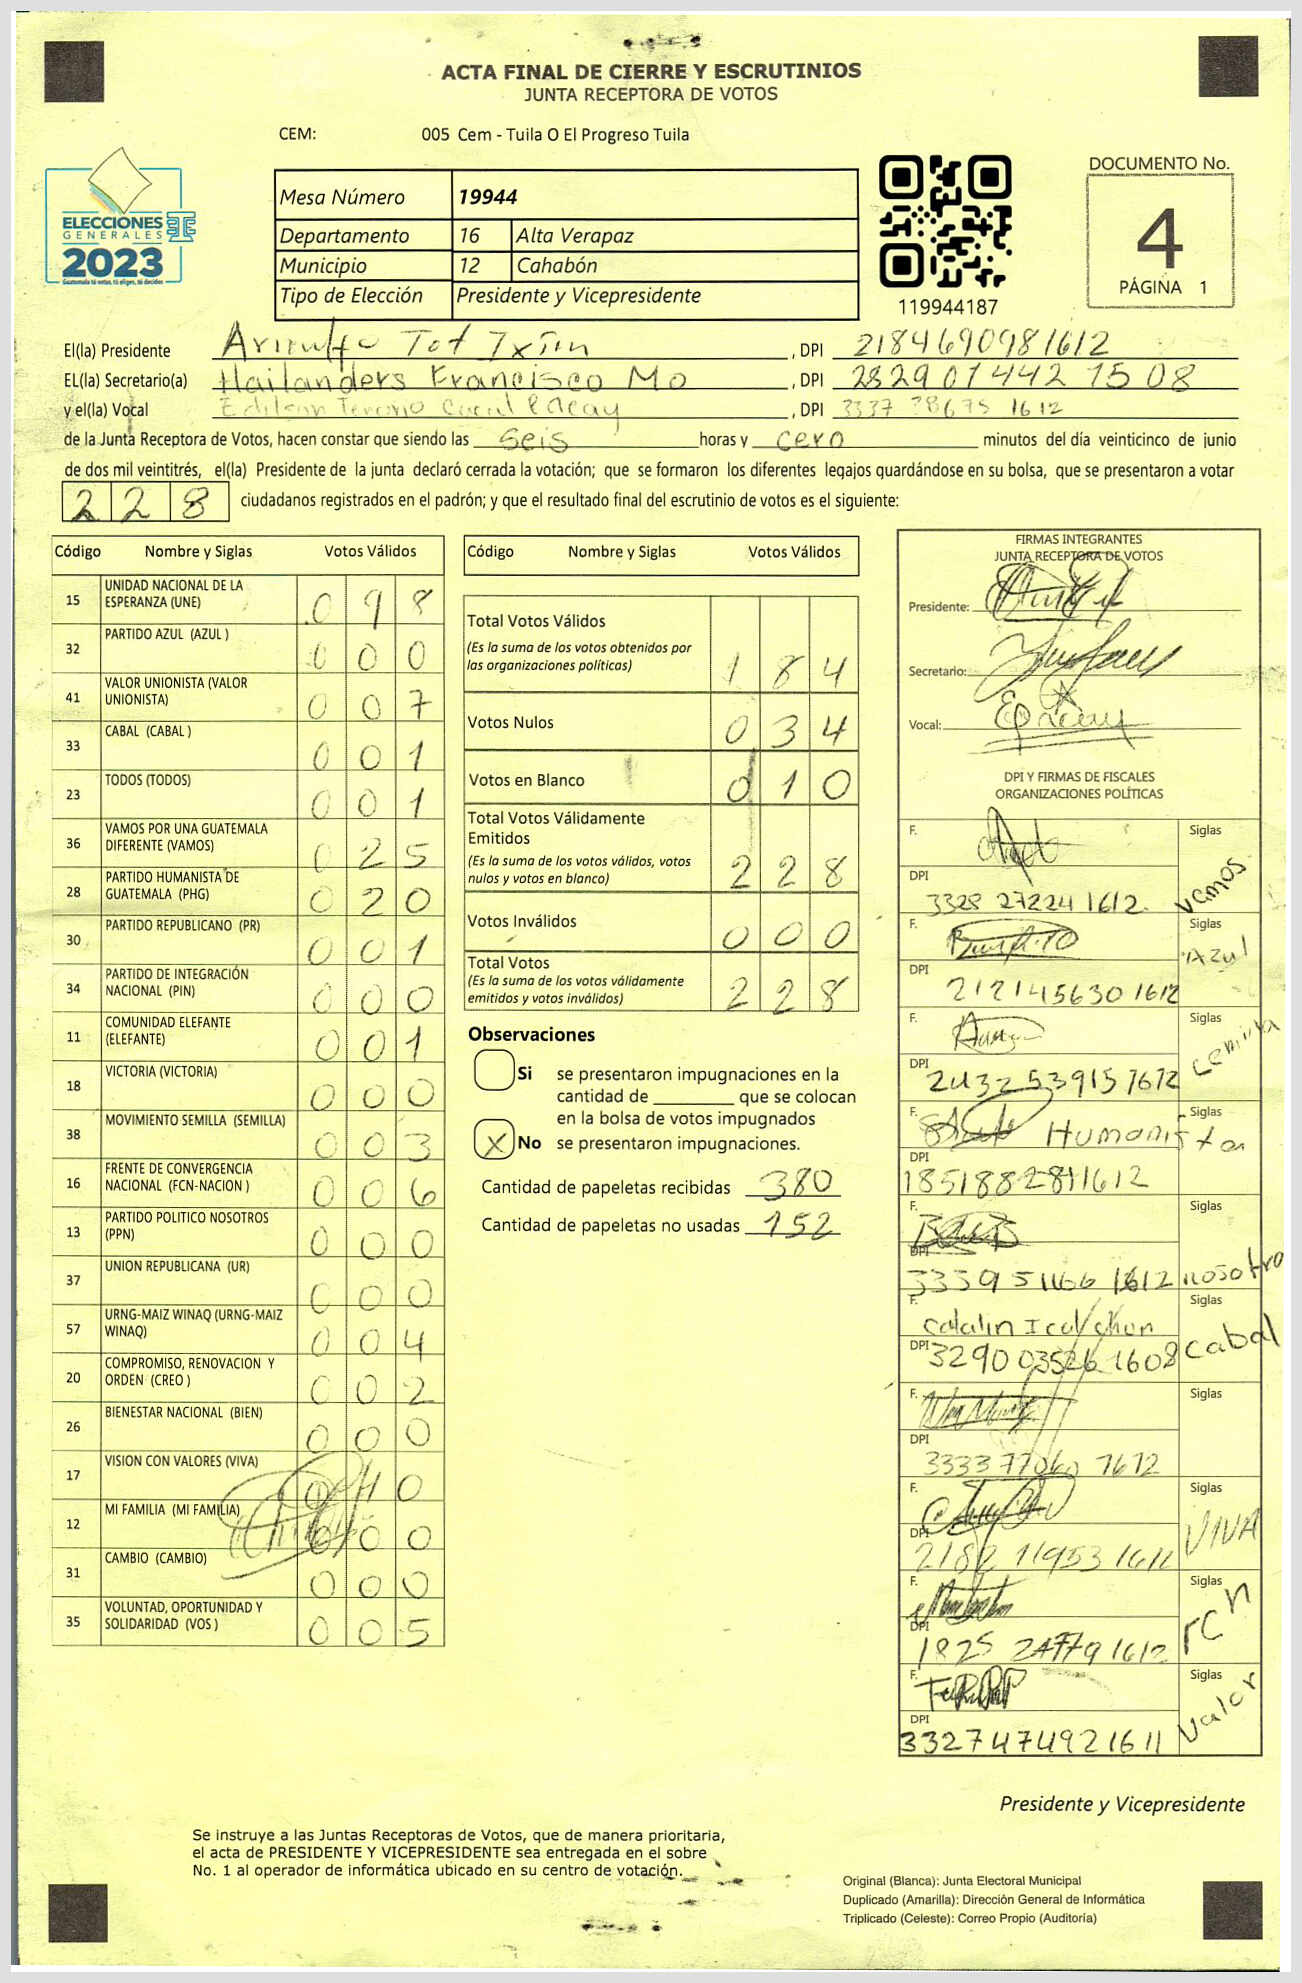 ACTA FINAL DE CIERRE Y ESCRUTINIOS
JUNTA RECEPTORA DE VOTOS
CEM: 005 Cem - Tuila O El Progreso Tuila
ELECCIONES
GENERALES
2023
Guatemala tú votas, tú eliges, tú decides
Mesa Número 19944
Departamento 16 Alta Verapaz
Municipio 12 Cahabón
Tipo de Elección Presidente y Vicepresidente
119944187
DOCUMENTO No.
4
PÁGINA 1
El(la) Presidente Tot , DPI 2184690981612
EL(la) Secretario(a) Hailanders Francisco Mo , DPI 2829014421508
y el(la) Vocal , DPI 3337 38675 1612
de la Junta Receptora de Votos, hacen constar que siendo las seis horas y cero minutos del día veinticinco de junio
de dos mil veintitrés, el(la) Presidente de la junta declaró cerrada la votación; que se formaron los diferentes legajos quardándose en su bolsa, que se presentaron a votar
228 ciudadanos registrados en el padrón; y que el resultado final del escrutinio de votos es el siguiente:
Código Nombre y Siglas Votos Válidos
15 UNIDAD NACIONAL DE LA ESPERANZA (UNE) 098
32 PARTIDO AZUL (AZUL ) 000
41 VALOR UNIONISTA (VALOR UNIONISTA) 007
33 CABAL (CABAL ) 001
23 TODOS (TODOS) 001
36 VAMOS POR UNA GUATEMALA DIFERENTE (VAMOS) 025
28 PARTIDO HUMANISTA DE GUATEMALA (PHG) 020
30 PARTIDO REPUBLICANO (PR) 001
34 PARTIDO DE INTEGRACIÓN NACIONAL (PIN) 000
11 COMUNIDAD ELEFANTE (ELEFANTE) 001
18 VICTORIA (VICTORIA) 000
38 MOVIMIENTO SEMILLA (SEMILLA) 003
16 FRENTE DE CONVERGENCIA NACIONAL (FCN-NACION ) 006
13 PARTIDO POLITICO NOSOTROS (PPN) 000
37 UNION REPUBLICANA (UR) 000
57 URNG-MAIZ WINAQ (URNG-MAIZ WINAQ) 004
20 COMPROMISO, RENOVACION Y ORDEN (CREO ) 002
26 BIENESTAR NACIONAL (BIEN) 000
17 VISION CON VALORES (VIVA) 010
12 MI FAMILIA (MI FAMILIA) 000
31 CAMBIO (CAMBIO) 000
35 VOLUNTAD, OPORTUNIDAD Y SOLIDARIDAD (VOS ) 005
Código Nombre y Siglas Votos Válidos
Total Votos Válidos 184
(Es la suma de los votos obtenidos por
las organizaciones políticas)
Votos Nulos 034
Votos en Blanco 010
Total Votos Válidamente
Emitidos 228
(Es la suma de los votos válidos, votos
nulos y votos en blanco)
Votos Inválidos 000
Total Votos 228
(Es la suma de los votos válidamente
emitidos y votos inválidos)
Observaciones
Si se presentaron impugnaciones en la
cantidad de ________ que se colocan
en la bolsa de votos impugnados
X No se presentaron impugnaciones.
Cantidad de papeletas recibidas 380
Cantidad de papeletas no usadas 152
FIRMAS INTEGRANTES
JUNTA RECEPTORA DE VOTOS
Presidente:
Secretario:
Vocal:
DPI Y FIRMAS DE FISCALES
ORGANIZACIONES POLÍTICAS
F. Siglas
DPI 3328 27224 1612 vamos
F. Siglas
DPI 2121456301612 Azul
F. Siglas
DPI 2432539151612
F. Humanista Siglas
DPI 1851882811612
F. Siglas
DPI 3339511661612 nosotro
F. Siglas
DPI 3290035261608 Cabal
F. Siglas
DPI 3333 77060 1612
F. Siglas
DPI 2182 11953 1611 VIVA
F. Siglas
DPI 1825 24779 1612 FCN
F. Siglas
DPI 3327474921611 Valor
Presidente y Vicepresidente
Se instruye a las Juntas Receptoras de Votos, que de manera prioritaria,
el acta de PRESIDENTE Y VICEPRESIDENTE sea entregada en el sobre
No. 1 al operador de informática ubicado en su centro de votación.
Original (Blanca): Junta Electoral Municipal
Duplicado (Amarilla): Dirección General de Informática
Triplicado (Celeste): Correo Propio (Auditoría)